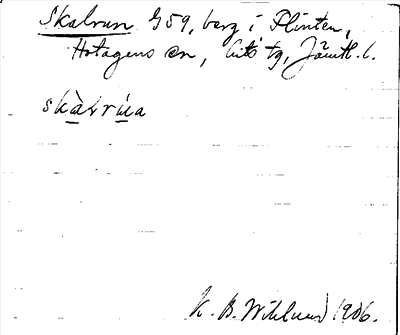 Skalrun G59, berg i Flinten,
Hotagens sn, Lits tg, Jämtl. l.
skàlrúa
K. B. Wiklund 1906.